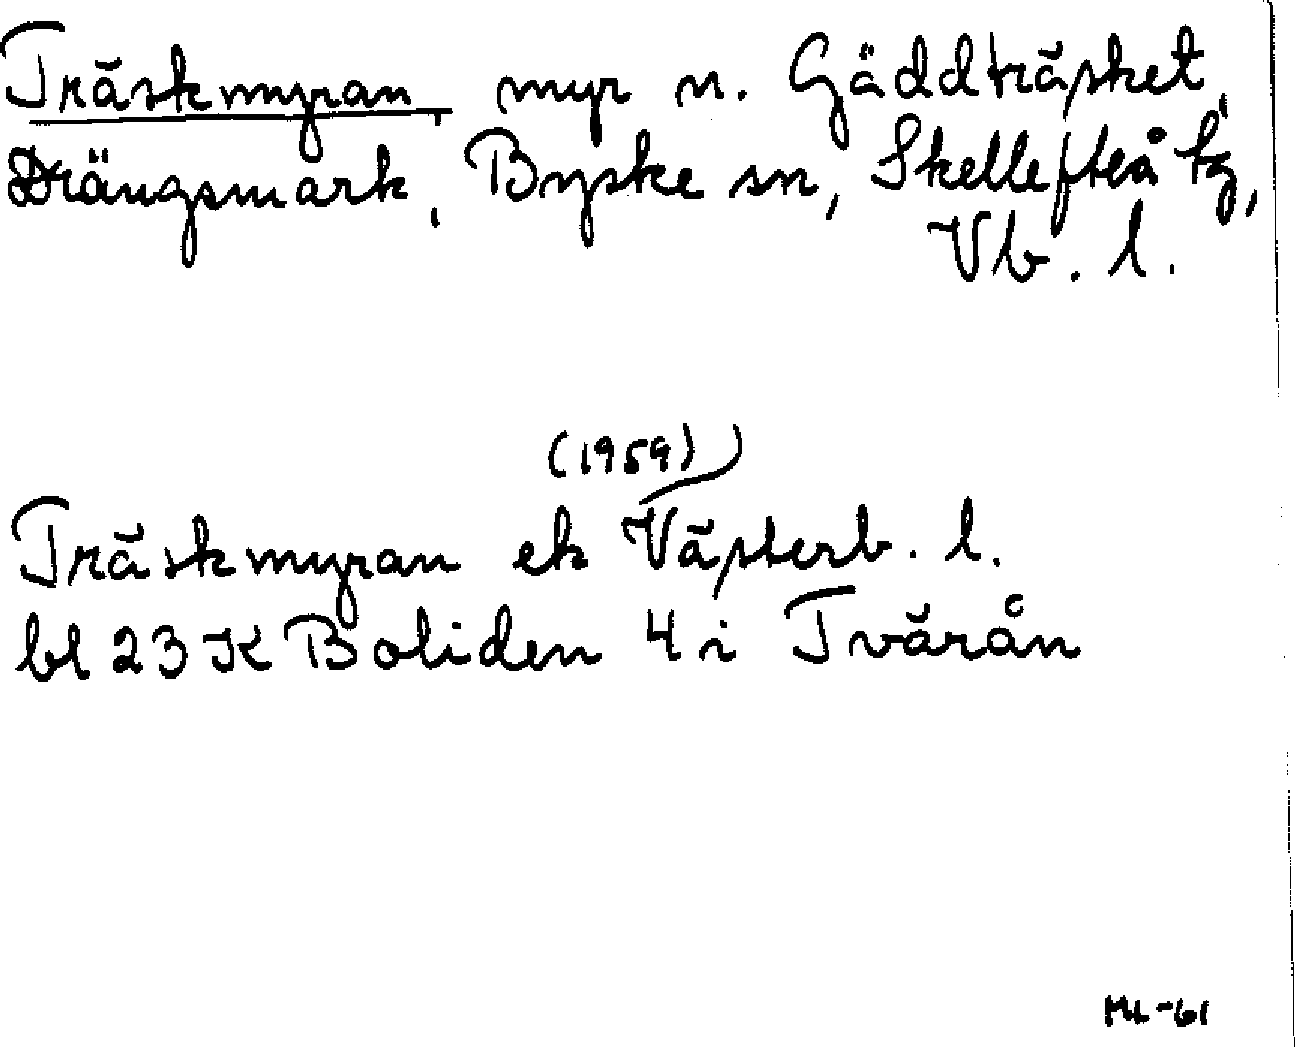 Träskmyran, myr n. Gäddträsket,
Drängsmark, Byske sn, Skellefteå tg,
Vb. l.
(1959)
Träskmyran ek Västerb. l.
bl 23 K Boliden 4 i Tvärån
ML-61